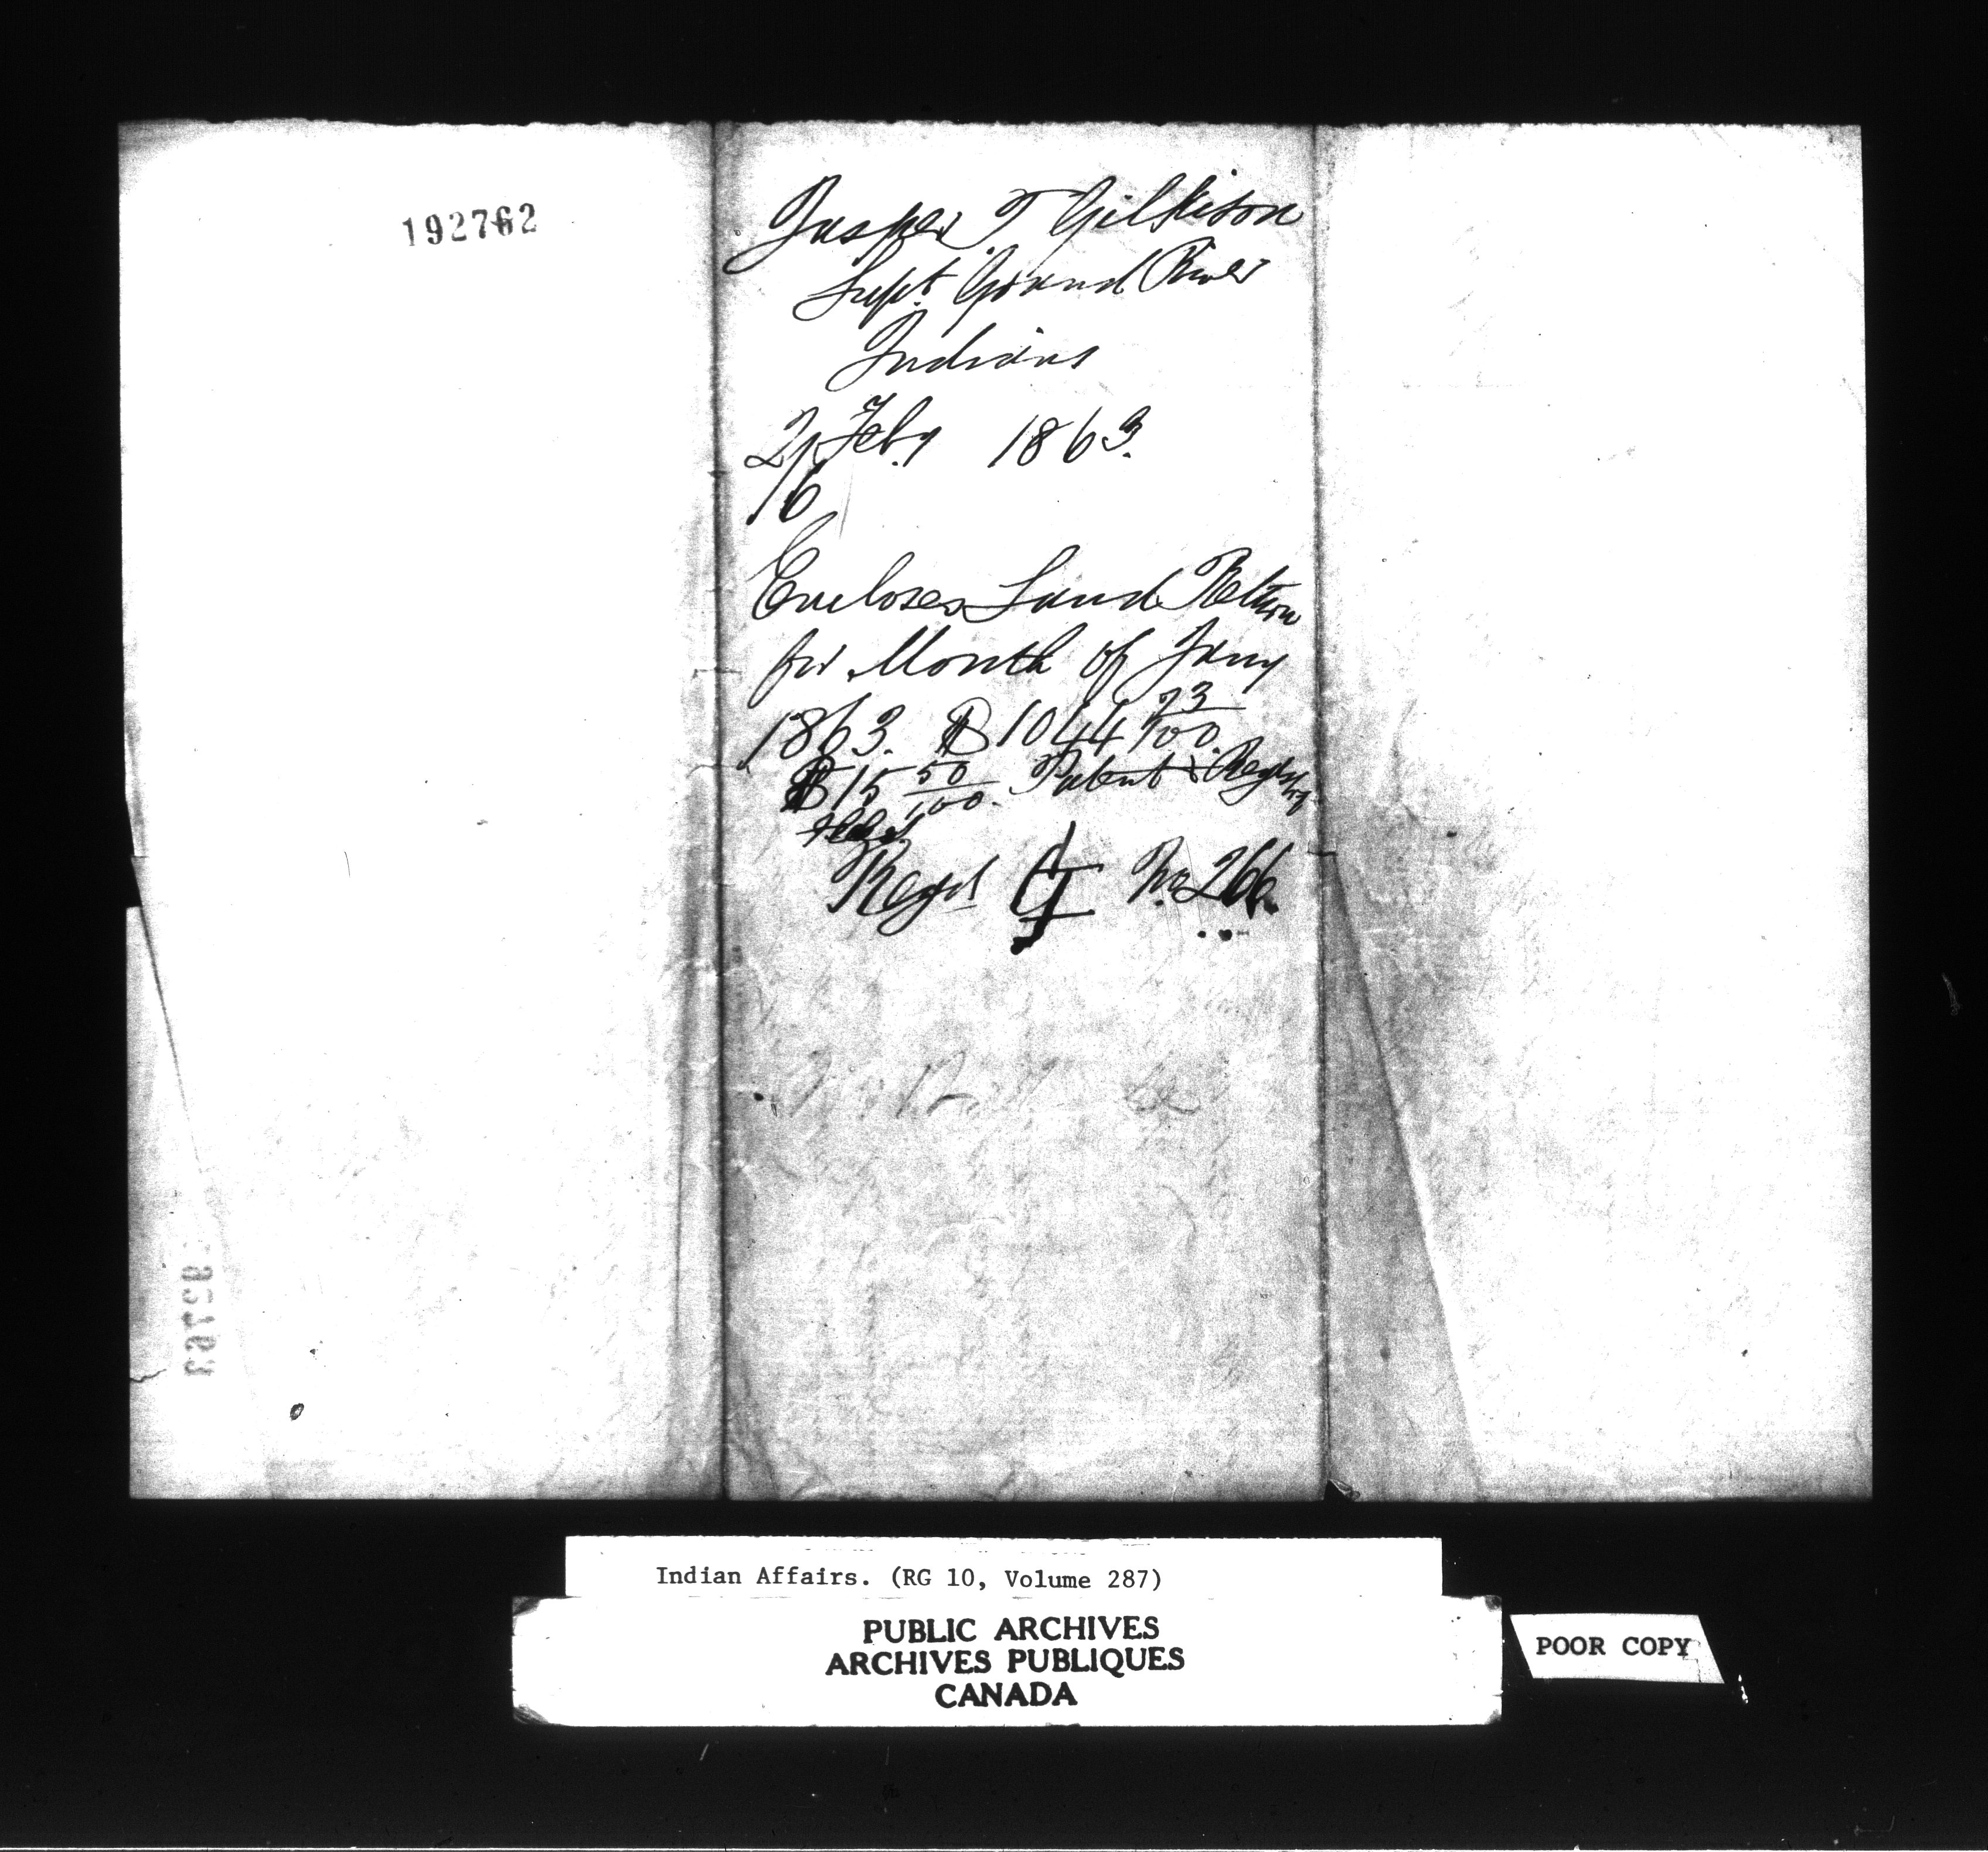 192762
Jasper T Gilkison
Supt. Grand River
Indians
2 Feby 1863.
16
Encloses Land Return
for Month of Jany
1863. $1044 73/100.
$15 50/100. Patent & Registry
Regd G No. 266.
Indian Affairs. (RG 10, Volume 287)
PUBLIC ARCHIVES
ARCHIVES PUBLIQUES
CANADA
POOR COPY